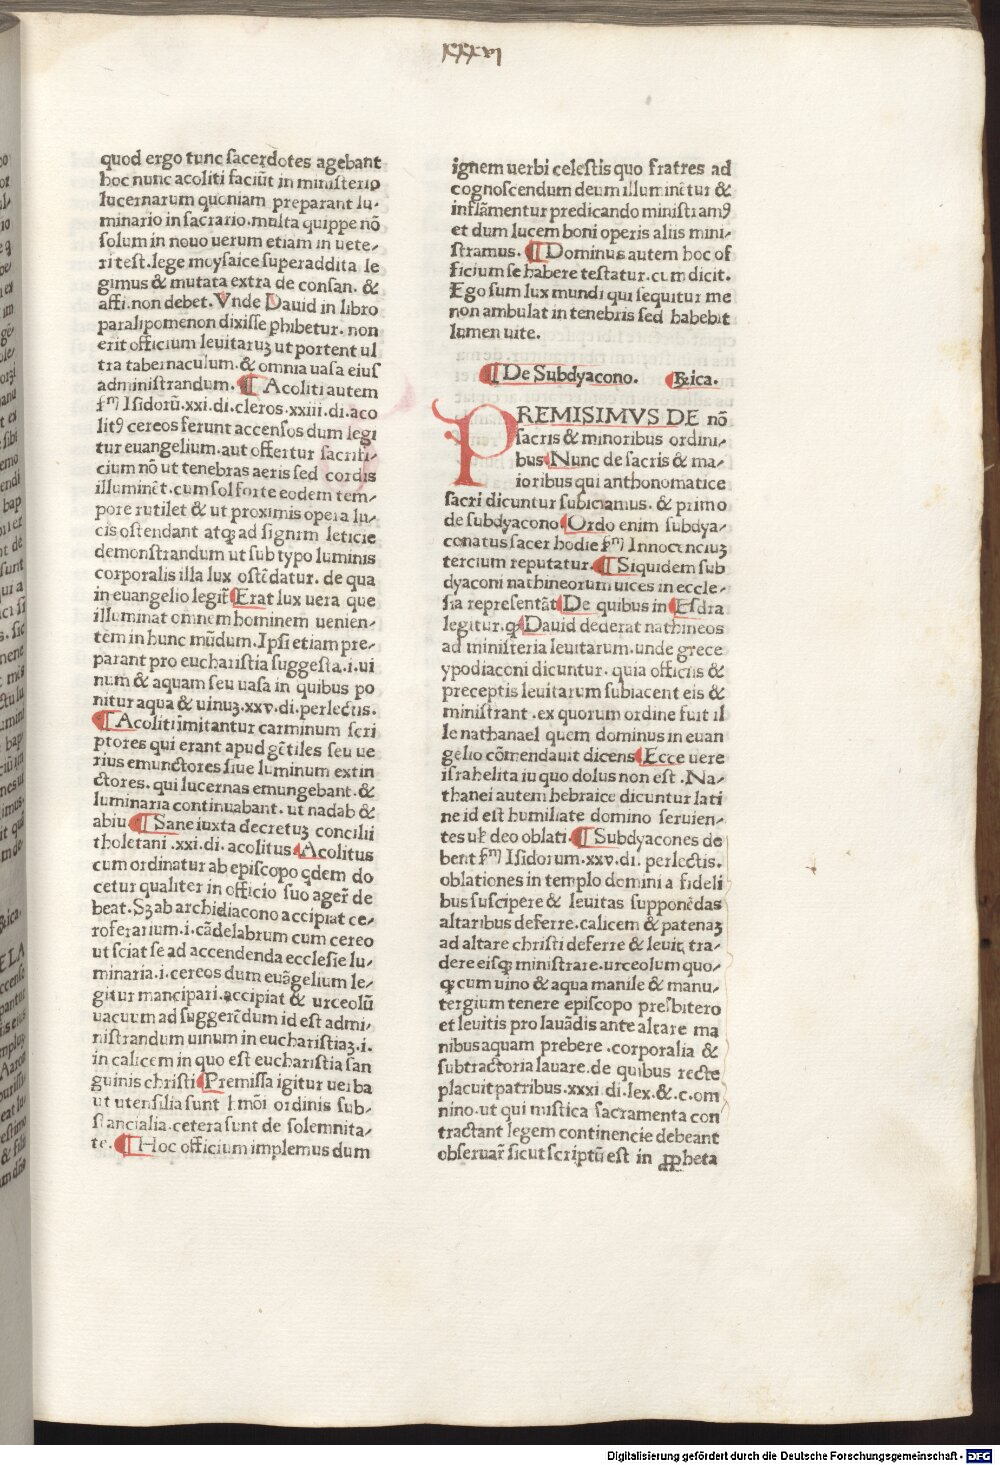 xxxvi
quod ergo tunc sacerdotes agebant
hoc nunc acoliti faciūt in ministerio
lucernarum quoniam preparant lu-
minario in sacrario. multa quippe nō
solum in nouo uerum etiam in uete-
ri test. lege moysaice superaddita le
gimus & mutata extra de consan. &
affi. non debet. Vnde Dauid in libro
paralipomenon dixisse phibetur. non
erit officium leuitaruꝫ ut portent ul
tra tabernaculum. & omnia uasa eius
administrandum. ¶ Acoliti autem
fm̄ Isidorū. xxi. di. cleros. xxiii. di. aco
litꝰ cereos ferunt accensos dum legi
tur euangelium. aut offertur sacrifi-
cium nō ut tenebras aeris sed cordis
illuminēt. cum sol forte eodem tem-
pore rutilet & ut proximis opera lu-
cis ostendant atqꝫ ad signum leticie
demonstrandum ut sub typo luminis
corporalis illa lux ostēdatur. de qua
in euangelio legit̄ Erat lux uera que
illuminat omnem hominem uenien-
tem in hunc mūdum. Ipsi etiam pre-
parant pro eucharistia suggesta. i. ui
num & aquam seu uasa in quibus po
nitur aqua & uinuꝫ. xxv. di. perlectis.
¶ Acoliti īmitantur carminum scri
ptores qui erant apud gētiles seu ue
rius emunctores siue luminum extin
ctores. qui lucernas emungebant. &
luminaria continuabant. ut nadab &
abiu. ¶ Sane iuxta decretuꝫ concilii
tholetani. xxi. di. acolitus. Acolitus
cum ordinatur ab episcopo qdem do
cetur qualiter in officio suo ager̄ de
beat. Sꝫ ab archidiacono accipiat ce-
roferarium. i. cādelabrum cum cereo
ut sciat se ad accendenda ecclesie lu-
minaria. i. cereos dum euāgelium le-
gitur mancipari. accipiat & urceolū
uacuum ad suggerēdum id est admi-
nistrandum uinum in eucharistiaꝫ. i.
in calicem in quo est eucharistia san
guinis christi Premissa igitur uerba
ut utensilia sunt hmōi ordinis sub-
stancialia. cetera sunt de solemnita-
te. ¶ Hoc officium implemus dum
ignem uerbi celestis quo fratres ad
cognoscendum deum illuminētur &
inflāmentur predicando ministramꝰ
et dum lucem boni operis aliis mini-
stramus. ¶ Dominus autem hoc of
ficium se habere testatur. cum dicit.
Ego sum lux mundi qui sequitur me
non ambulat in tenebris sed habebit
lumen uite.
¶ De Subdyacono. Rica.
PREMISIMVS DE nō
sacris & minoribus ordini-
bus Nunc de sacris & ma-
ioribus qui anthonomatice
sacri dicuntur subiciamus. & primo
de subdyacono Ordo enim subdya-
conatus sacer hodie fm̄ Innocenciuꝫ
tercium reputatur. ¶ Siquidem sub
dyaconi nathineorum uices in eccle-
sia representāt De quibus in Esdra
legitur. qꝫ Dauid dederat nathineos
ad ministeria leuitarum. unde grece
ypodiaconi dicuntur. quia officiis &
preceptis leuitarum subiacent eis &
ministrant. ex quorum ordine fuit il
le nathanael quem dominus in euan
gelio cōmendauit dicens Ecce uere
israhelita iu quo dolus non est. Na-
thanei autem hebraice dicuntur lati
ne id est humiliate domino seruien-
tes ul deo oblati. ¶ Subdyacones de
bent fm̄ Isidorum. xxv. di. perlectis.
oblationes in templo domini a fideli
bus suscipere & leuitas supponēdas
altaribus deferre. calicem & patenaꝫ
ad altare christi deferre & leuit. tra-
dere eisqꝫ ministrare. urceolum quo-
qꝫ cum uino & aqua manile & manu-
tergium tenere episcopo presbitero
et leuitis pro lauādis ante altare ma
nibus aquam prebere. corporalia &
subtractoria lauare. de quibus recte
placuit patribus. xxxi di. lex. &. c. om
nino. ut qui mistica sacramenta con
tractant legem continencie debeant
obseruar̄ sicut scriptū est in ꝓpheta
Digitalisierung gefördert durch die Deutsche Forschungsgemeinschaft - DFG